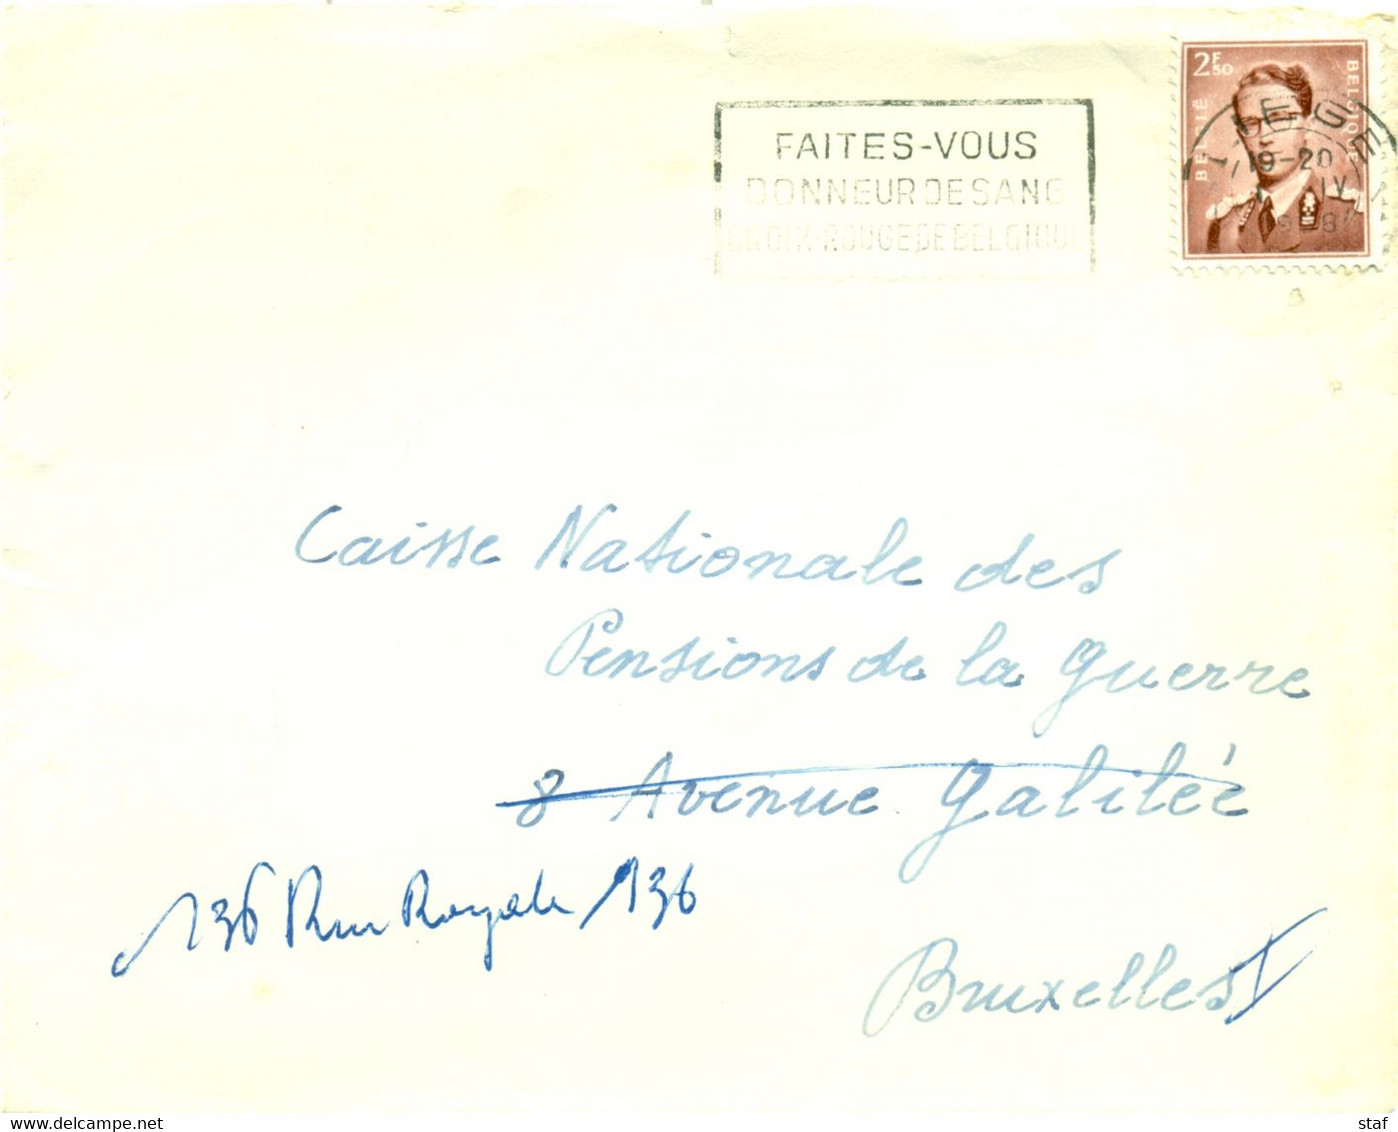 FAITES-VOUS
DONNEUR DE SANG
CROIX-ROUGE DE BELGIQUE
2F50
BELGIQUE
BELGIË
LIEGE
19-20
IV
Caisse Nationale des
Pensions de la Guerre
8 Avenue Galilée
136 Rue Royale 136
Bruxelles
www.delcampe.net
staf